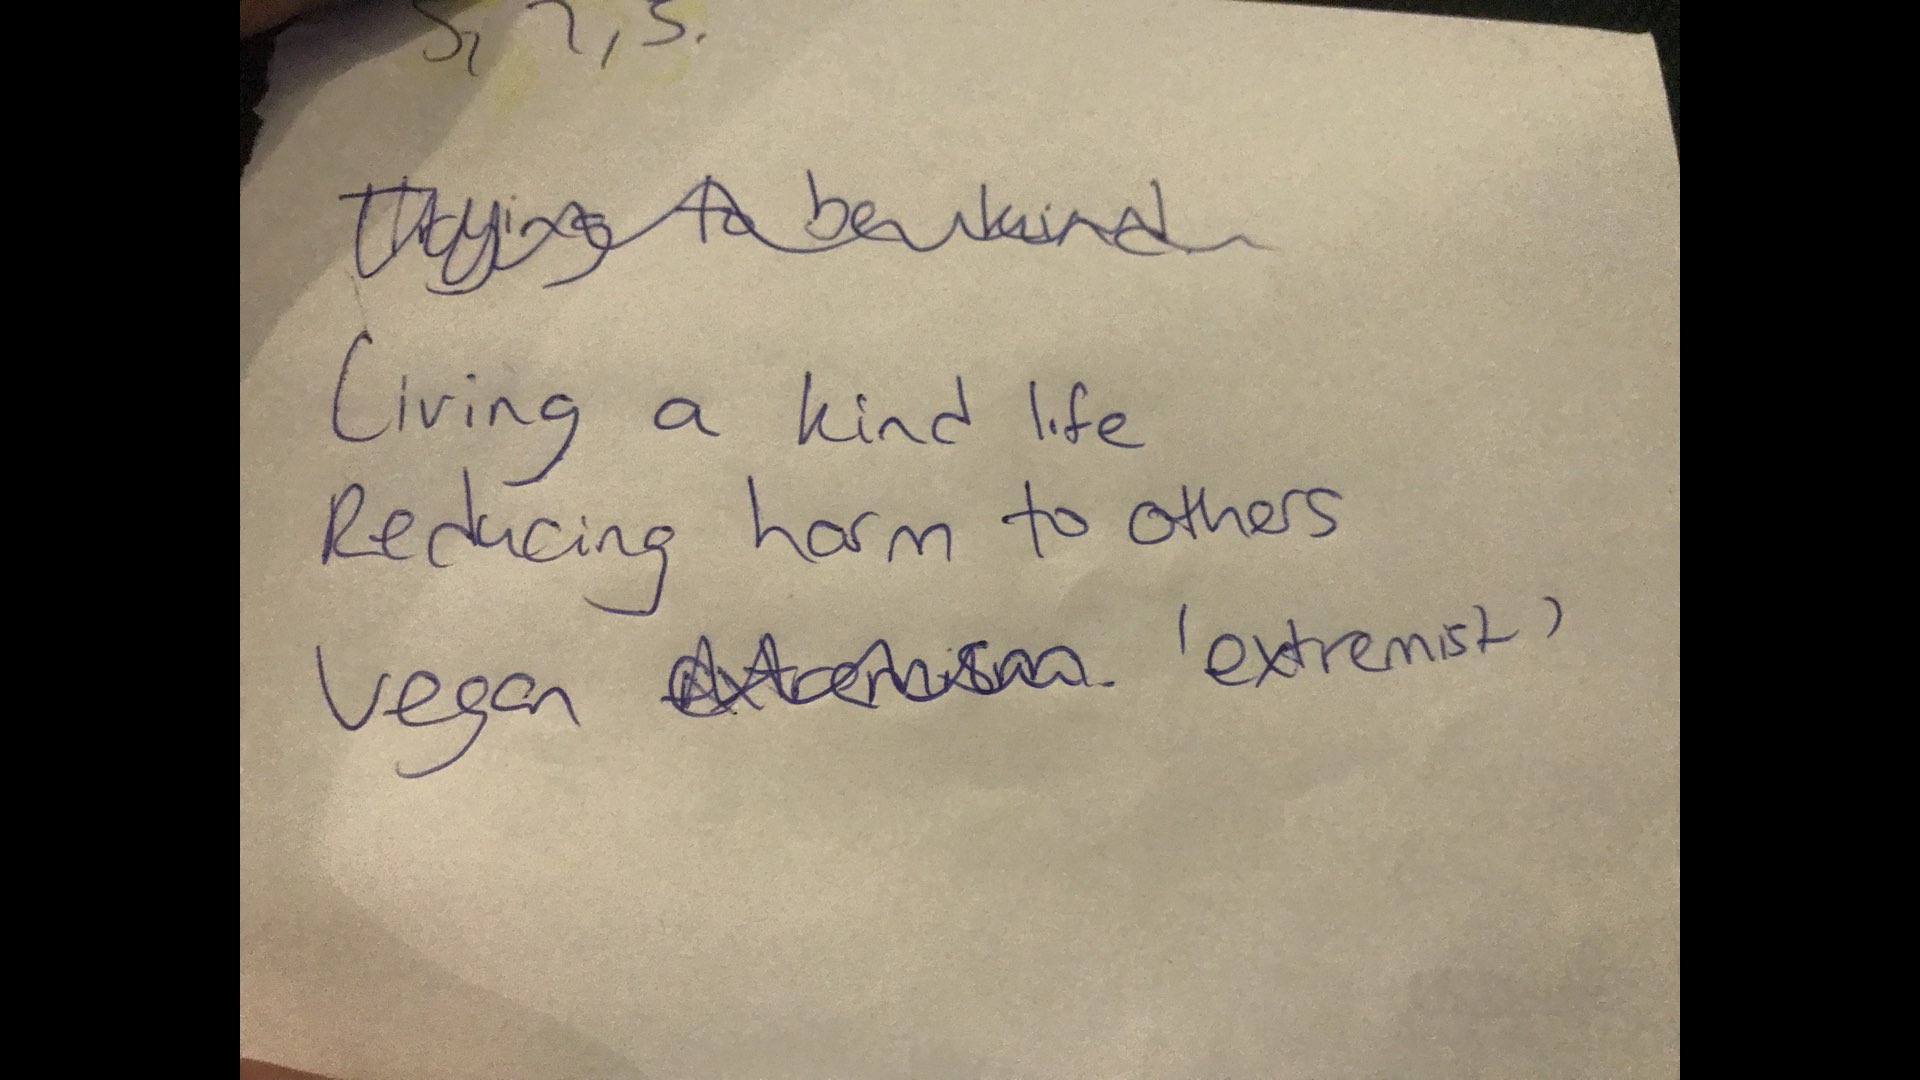 5, 7, 5.
Trying to be kind
Living a kind life
Reducing harm to others
Vegan extremism 'extremist'